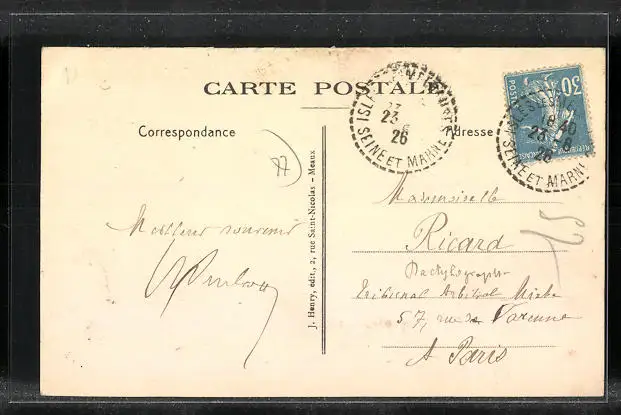 CARTE POSTALE
Correspondance
Adresse
23
26
SEINE ET MARNE
30
23
SEINE ET MARNE
77
Meilleur souvenir
J. Henry, édit., 2, rue Saint-Nicolas - Meaux
Mademoiselle
Ricard
Dactylographe
Tribunal Arbitral Mixte
57, rue de Varenne
A Paris